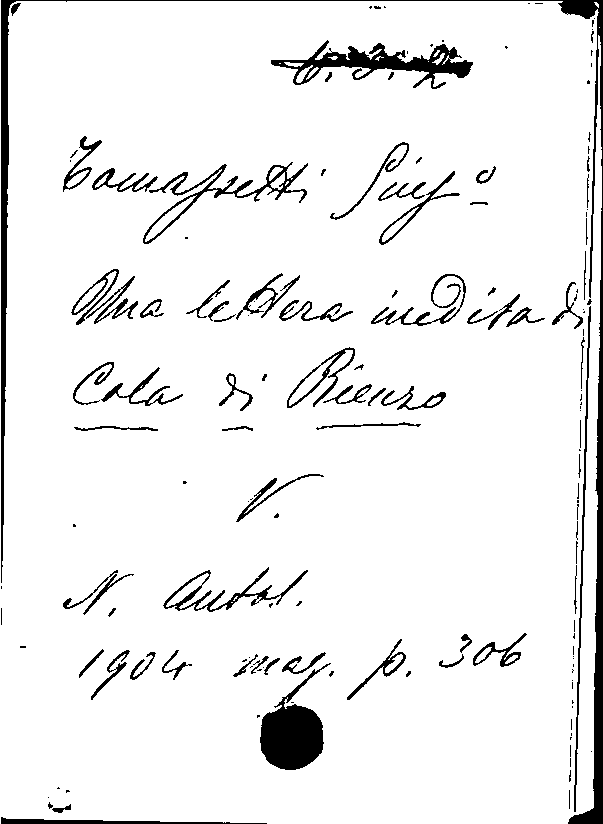 6. 3. 2
Tomassetti Giusº
Una lettera inedita di
Cola di Rienzo
V.
N. Antol.
1904 mag. p. 306